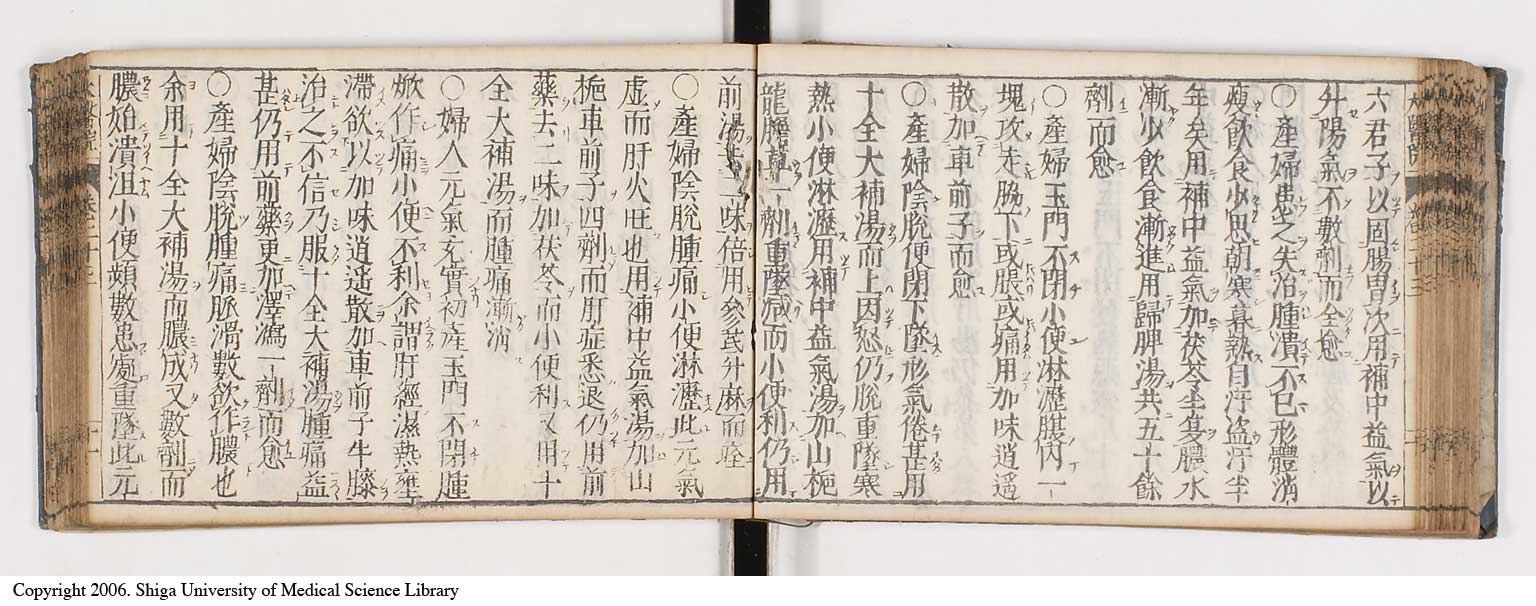 六君子以固腸胃次用補中益氣以
升陽氣不數劑而全愈
○產婦患之失治腫潰不已形體消
瘦飲食少思朝寒暮熱自汗盜汗半
年矣用補中益氣加茯苓半夏膿水
漸少飲食漸進用歸脾湯共五十餘
劑而愈
○產婦玉門不閉小便淋瀝腹內一
塊攻走脇下或脹或痛用加味逍遥
散加車前子而愈
○產婦陰脫便閉下墜形氣倦甚用
十全大補湯而上因怒仍脫重墜寒
熱小便淋瀝用補中益氣湯加山梔
龍膽草一劑重墜減而小便利仍用
前湯二味倍用參芪升麻而
○產婦陰脫腫痛小便淋瀝此元氣
虛而肝火旺也用補中益氣湯加山
梔車前子四劑而肝症悉退仍用前
藥去二味加茯苓而小便利又用十
全大補湯而腫痛漸消
○婦人元氣充實初產玉門不閉腫
焮作痛小便不利余謂肝經濕熱壅
滯欲以加味逍遥散加車前子牛膝
治之不信乃服十全大補湯腫痛益
甚仍用前藥更加澤瀉一劑而愈
○產婦陰脫腫痛脈滑數欲作膿也
余用十全大補湯而膿成又數劑而
膿始潰沮小便頻數患處重墜此元
Copyright 2006. Shiga University of Medical Science Library